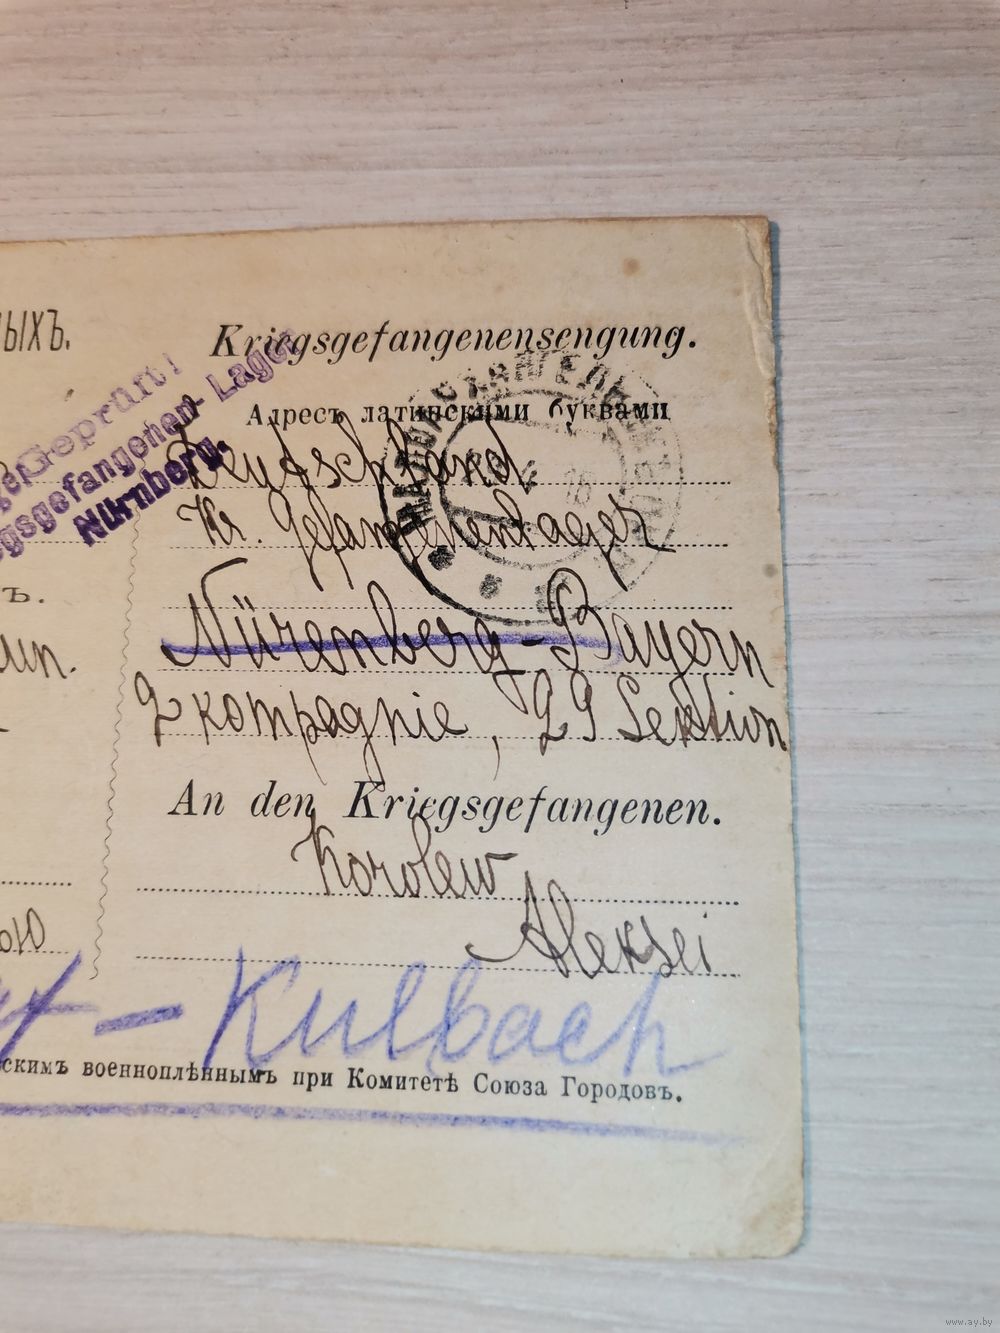 ЫХЪ.
Kriegsgefangenensengung.
Geprüft!
gsgefangenen-Lager
Nürnberg.
Адресъ латинскими буквами
Deutschland
Kr. Gefangenenlager
ъ.
Nürenberg-Bayern
2 kompagnie, 29 Sektion
An den Kriegsgefangenen.
Korolew
Aleksei
ою
- Kulbach
скимъ военноплѣннымъ при Комитетѣ Союза Городовъ.
www.ay.by